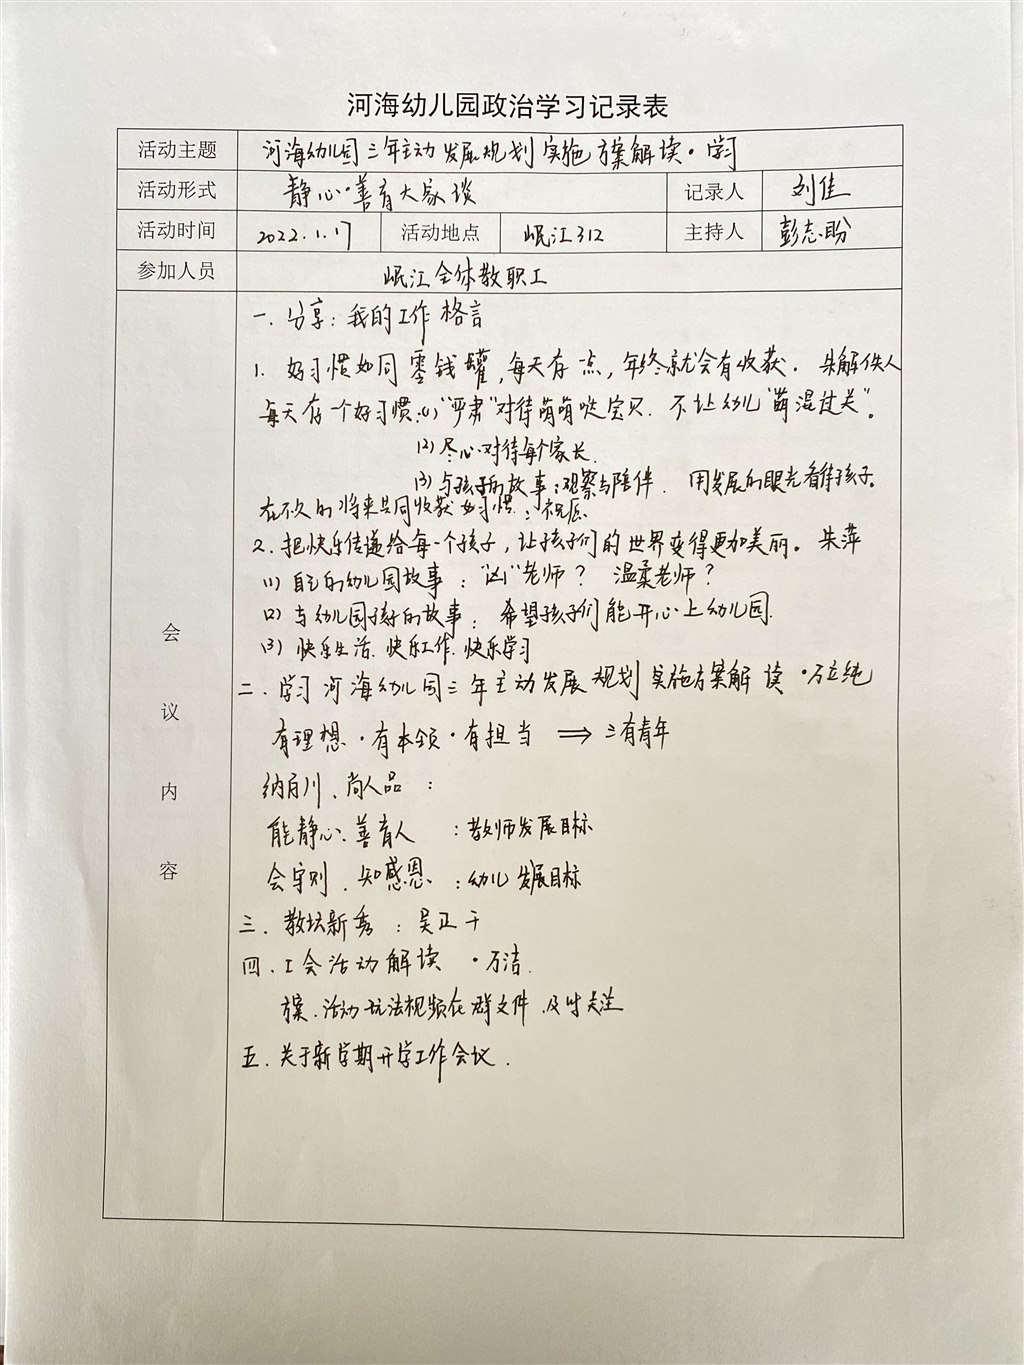 河海幼儿园政治学习记录表
活动主题 河海幼儿园三年主动发展规划实施方案解读·学习
活动形式 静心·善育大家谈 记录人 刘佳
活动时间 2022.1.17 活动地点 岷江312 主持人 彭志盼
参加人员 岷江全体教职工
会议内容
一、分享：我的工作格言
1. 好习惯如同零钱罐，每天存一点，年终就会有收获. 朱解佚人
每天存一个好习惯：(1)"严肃"对待萌萌哒宝贝. 不让幼儿"萌混过关"。
(2) 尽心对待每个家长.
(3) 与孩子的故事：观察与陪伴. 用发展的眼光看待孩子。
在不久的将来共同收获好习惯：祝愿
2. 把快乐传递给每一个孩子，让孩子们的世界变得更加美丽。 朱萍
(1) 自己的幼儿园故事："凶"老师？ 温柔老师？
(2) 与幼儿园孩子的故事：希望孩子们能开心上幼儿园.
(3) 快乐生活.快乐工作.快乐学习
二、学习河海幼儿园三年主动发展规划实施方案解读·万立纯
有理想·有本领·有担当 ⇒ 三有青年
纳百川、尚人品：
能静心、善育人 ：教师发展目标
会守则、知感恩 ：幼儿发展目标
三、教坛新秀：吴正干
四、工会活动解读 ·万洁.
方案.活动玩法视频在群文件.及时关注
五、关于新学期开学工作会议.